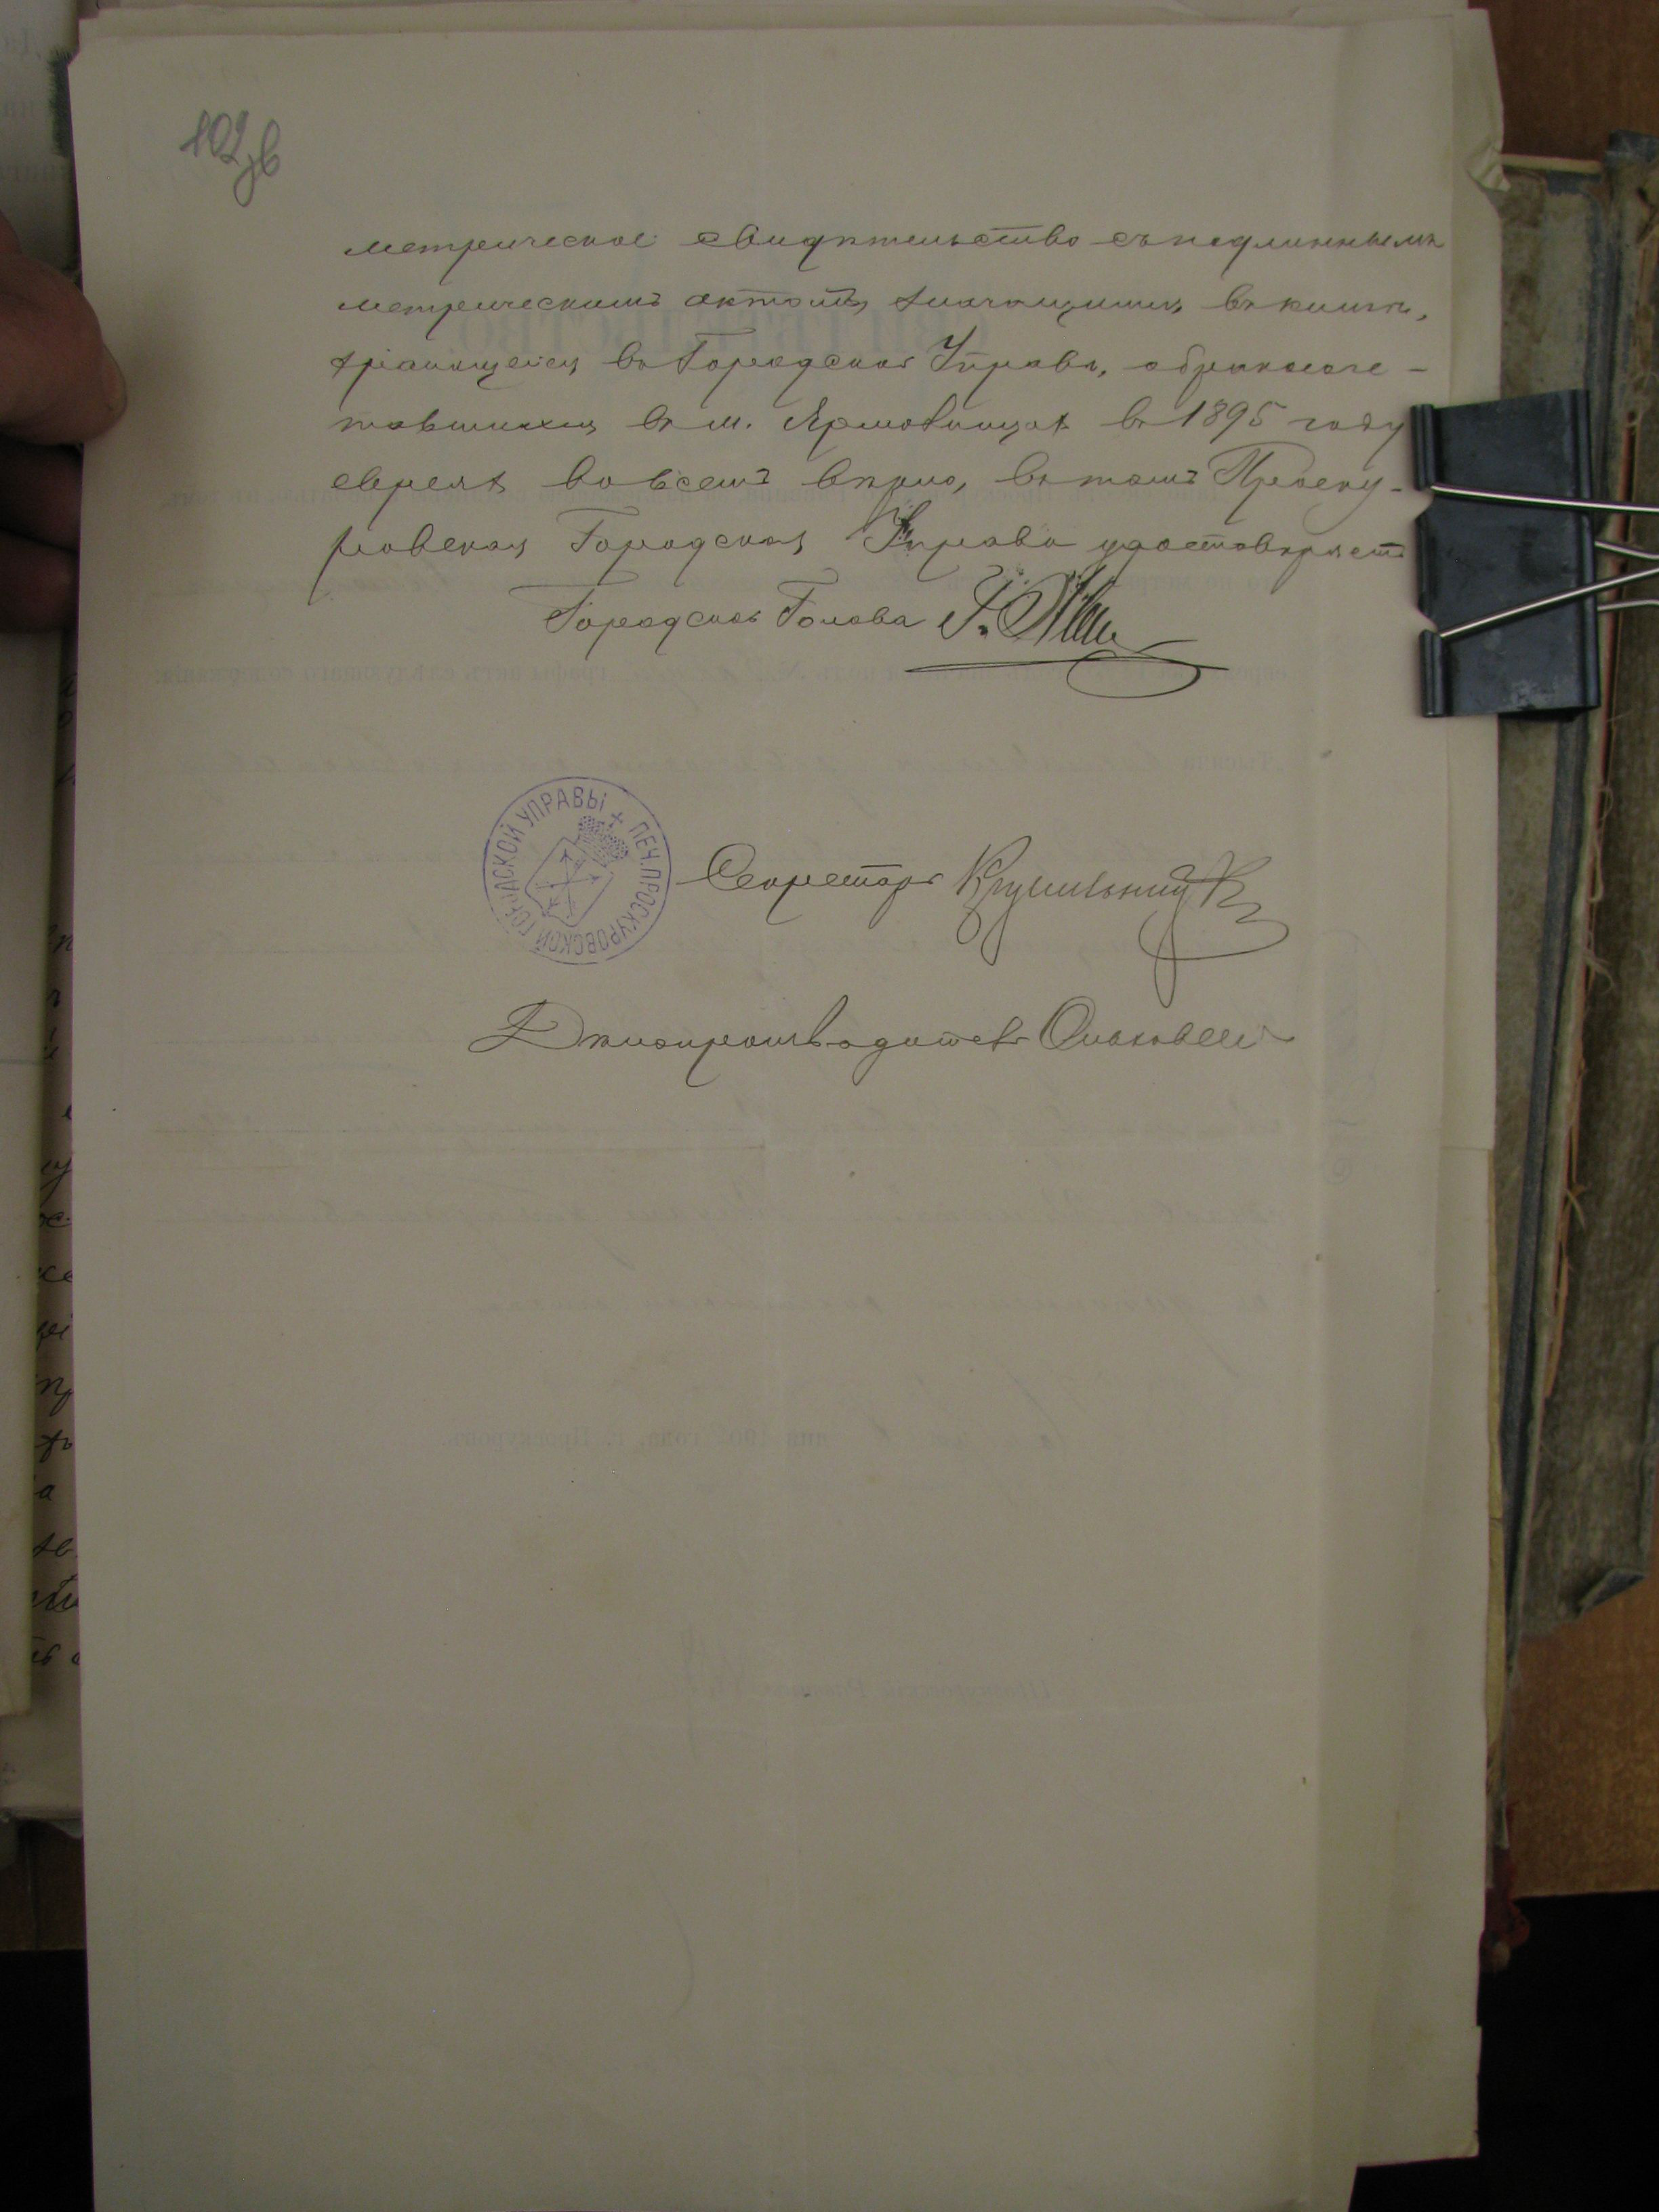 102 зв
метрическое свидѣтельство съ подлиннымъ
метрическимъ актомъ, значащимся въ книгѣ,
хранящейся въ Городской Управѣ, о бракосоче-
тавшихся въ м. Ярмолинцахъ въ 1895 году
евреяхъ во всемъ вѣрно, въ томъ Проску-
ровская Городская Управа удостовѣряетъ
Городской Голова
ПЕЧ. ПРОСКУРОВСКОЙ ГОРОДСКОЙ УПРАВЫ
Секретарь
Дѣлопроизводитель